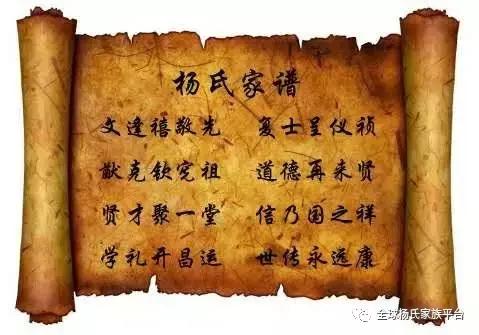 杨氏家谱
文逢禧敬先 复士呈仪祯
猷克钦宪祖 道德再来贤
贤才聚一堂 信乃国之祥
学礼开昌运 世传永远康
全球杨氏家族平台